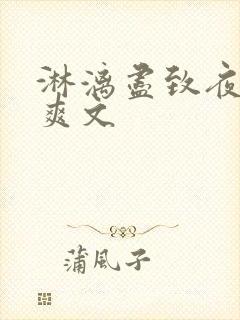 淋漓尽致夜
爽文
蒲風子